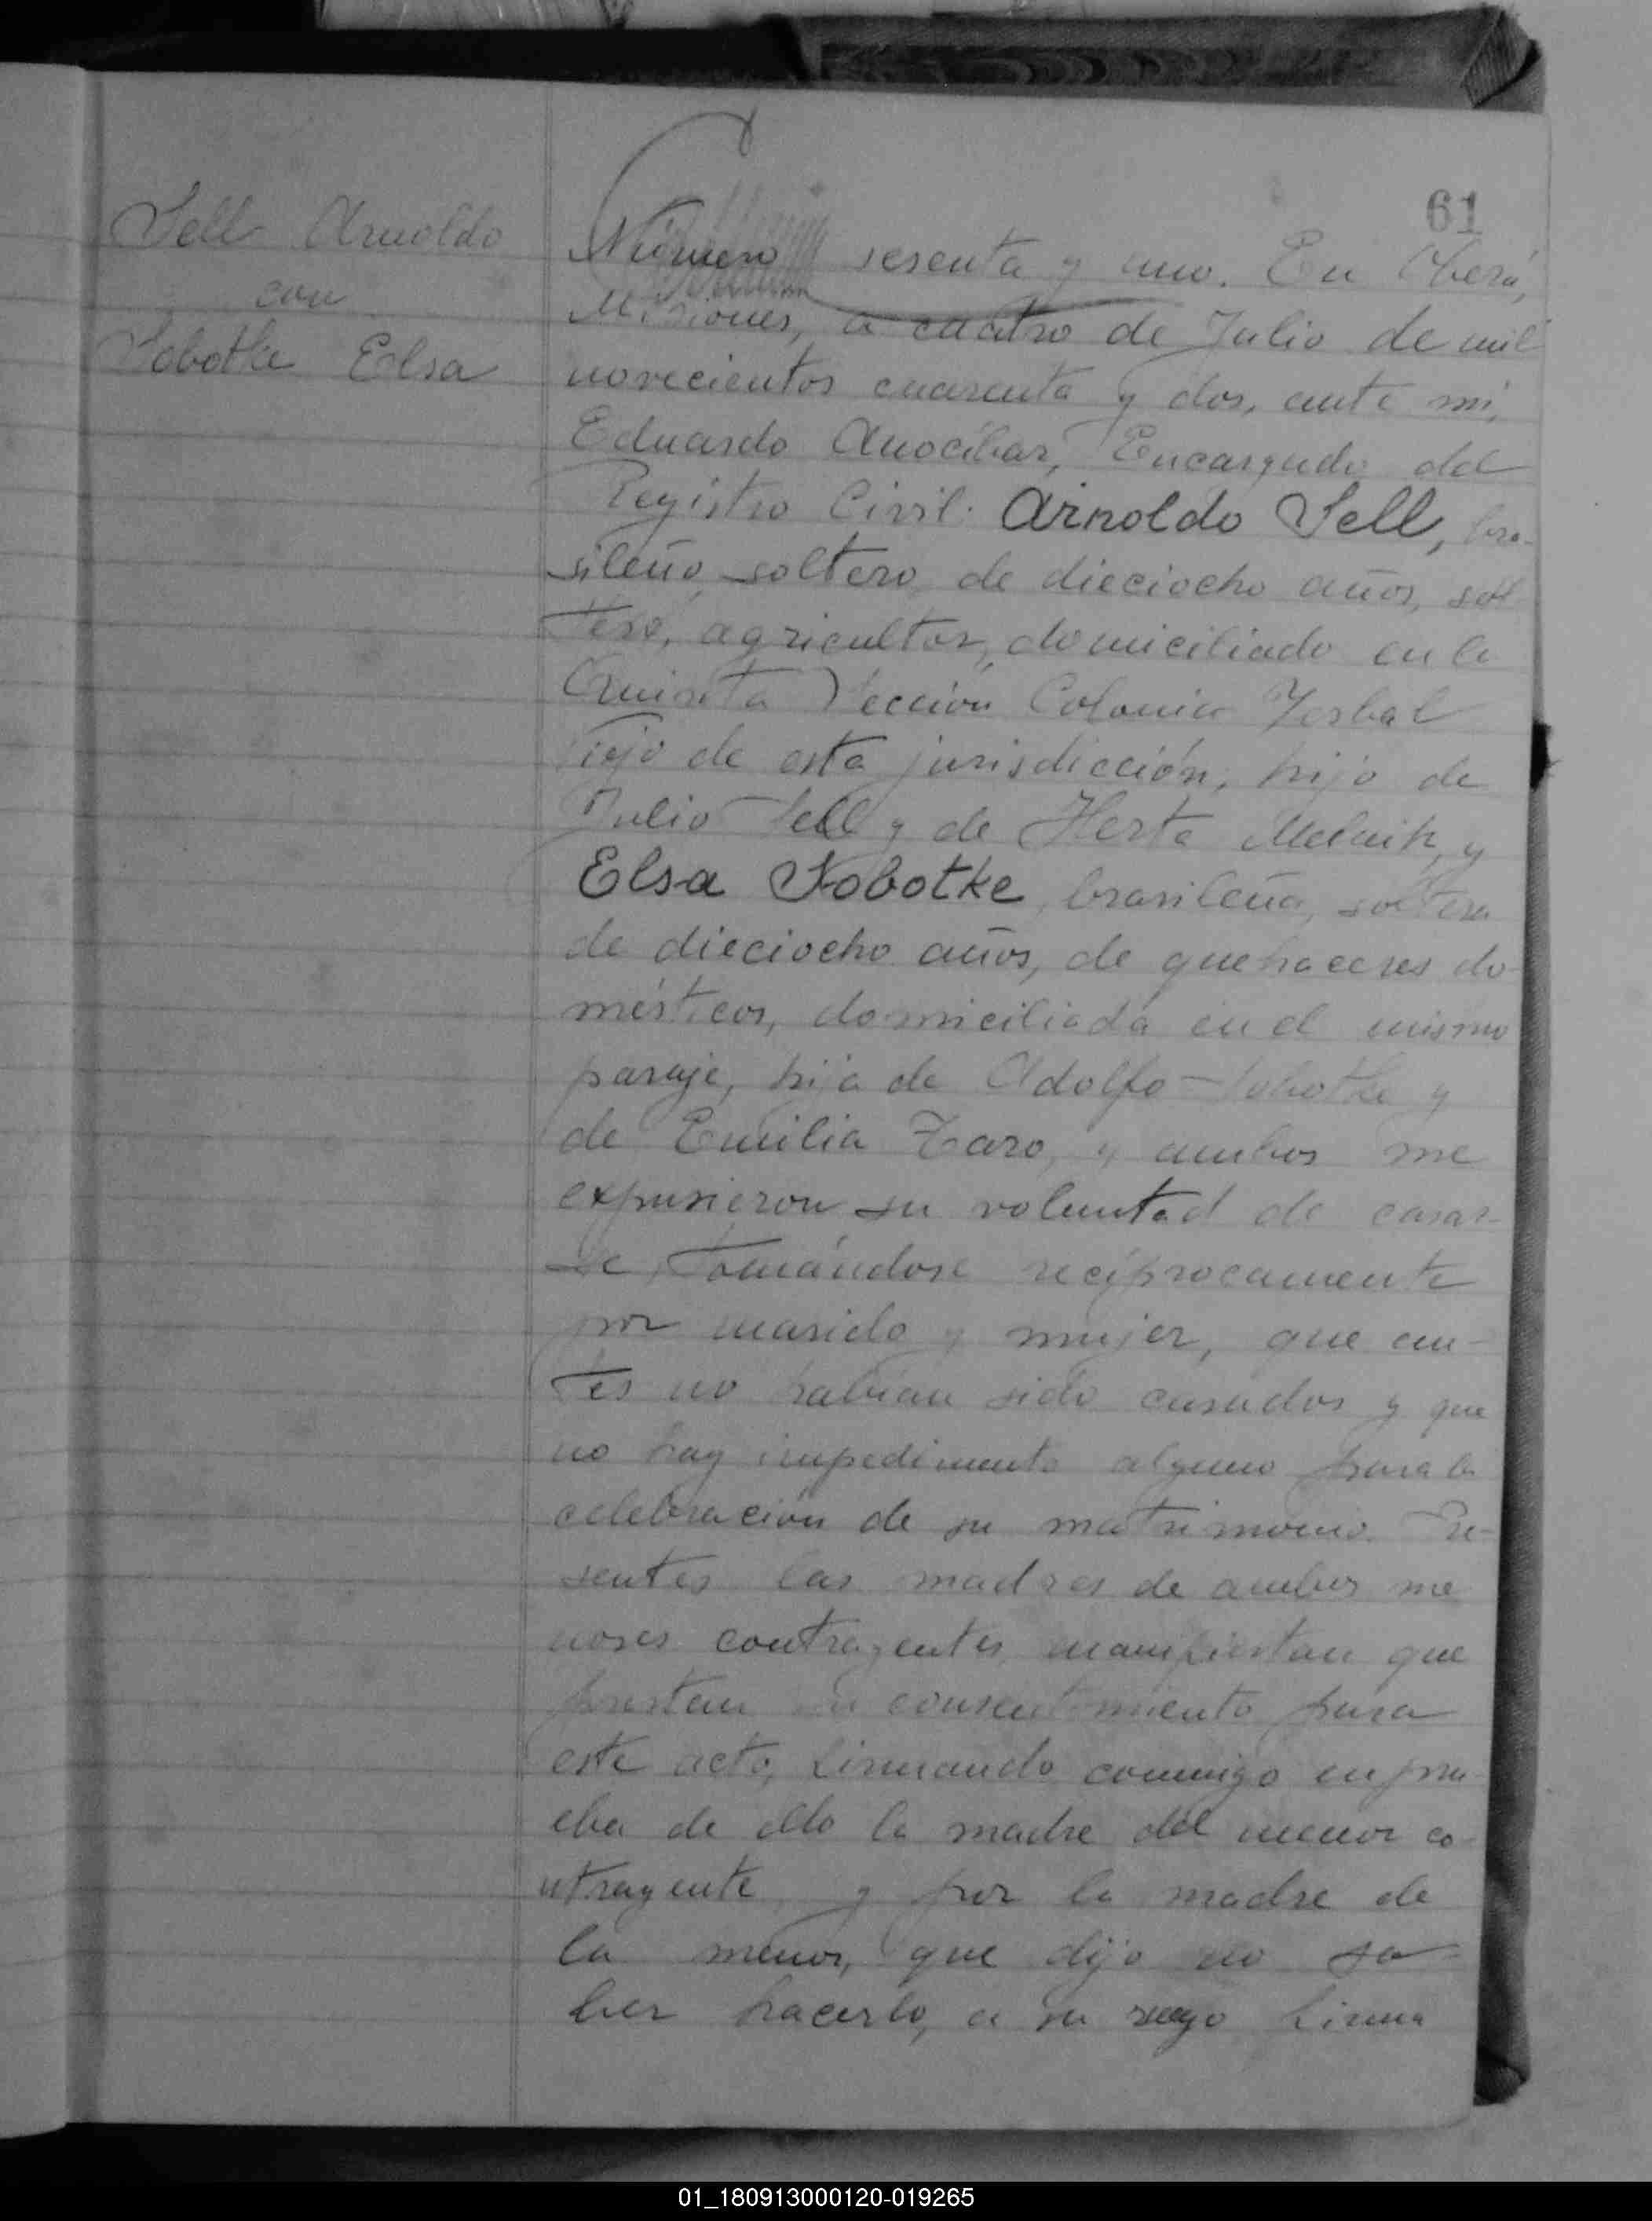 61
Sell Arnoldo
con
Sobotke Elsa
Número sesenta y uno. En Oberá,
Misiones, a cuatro de Julio de mil
novecientos cuarenta y dos, ante mí,
Eduardo Anocíbar, Encargado del
Registro Civil: Arnoldo Sell, bra-
sileño, soltero, de dieciocho años, sol
tero, agricultor, domiciliado en la
Quinta Sección Colonia Yerbal
Viejo de esta jurisdicción, hijo de
Julio Sell y de Herta Melnik, y
Elsa Sobotke, brasileña, soltera
de dieciocho años, de quehaceres do-
mésticos, domiciliada en el mismo
paraje, hija de Adolfo Sobotke y
de Emilia Zaro, y ambos me
expusieron su voluntad de casar-
se, tomándose recíprocamente
por marido y mujer, que an-
tes no habían sido casados y que
no hay impedimento alguno para la
celebración de su matrimonio. Pre-
sentes las madres de ambos me
nores contrayentes, manifiestan que
prestan su consentimiento para
este acto, firmando conmigo en pru-
eba de ello la madre del menor co-
ntrayente y por la madre de
la menor, que dijo no sa-
ber hacerlo, a su ruego firma
01_180913000120-019265